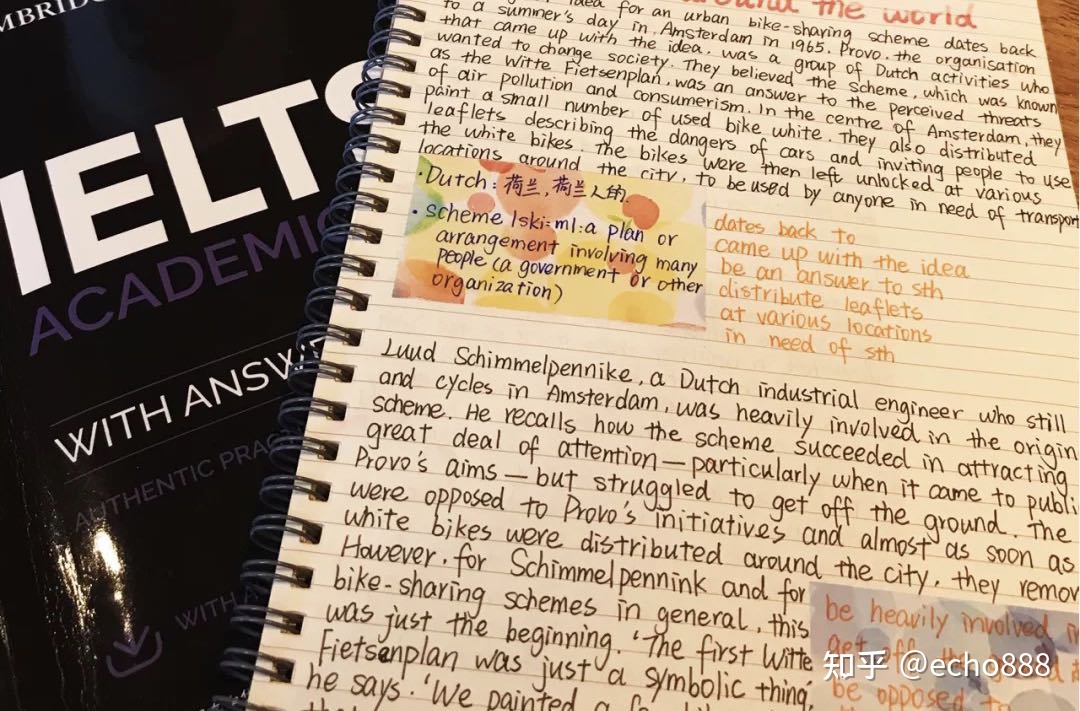 MBRIDG
IELTS
ACADEMIC
WITH ANSWE
AUTHENTIC PRAC
WITH A
around the world
idea for an urban bike-sharing scheme dates back
to a summer's day in Amsterdam in 1965. Provo, the organisation
that came up with the idea, was a group of Dutch activities who
wanted to change society. They believed the scheme, which was known
as the Witte Fietsenplan, was an answer to the perceived threats
of air pollution and consumerism. In the centre of Amsterdam, they
paint a small number of used bike white. They also distributed
leaflets describing the dangers of cars and inviting people to use
the white bikes. the bikes were then left unlocked at various
locations around the city, to be used by anyone in need of transport
• Dutch: 荷兰,荷兰人的.
• scheme /ski:m/: a plan or
arrangement involving many
people (a government or other
organization)
dates back to
came up with the idea
be an answer to sth
distribute leaflets
at various locations
in need of sth
Luud Schimmelpennike, a Dutch industrial engineer who still
and cycles in Amsterdam, was heavily involved in the origin
scheme. He recalls how the scheme succeeded in attracting
great deal of attention — particularly when it came to publi
Provo's aims — but struggled to get off the ground. The
were opposed to Provo's initiatives and almost as soon as
white bikes were distributed around the city, they remov
However, for Schimmelpennink and for
bike-sharing schemes in general, this
was just the beginning. 'The first Witte
Fietsenplan was just a symbolic thing,'
he says. 'We painted a
be heavily involved in
get off the ground
be opposed to
知乎 @echo888